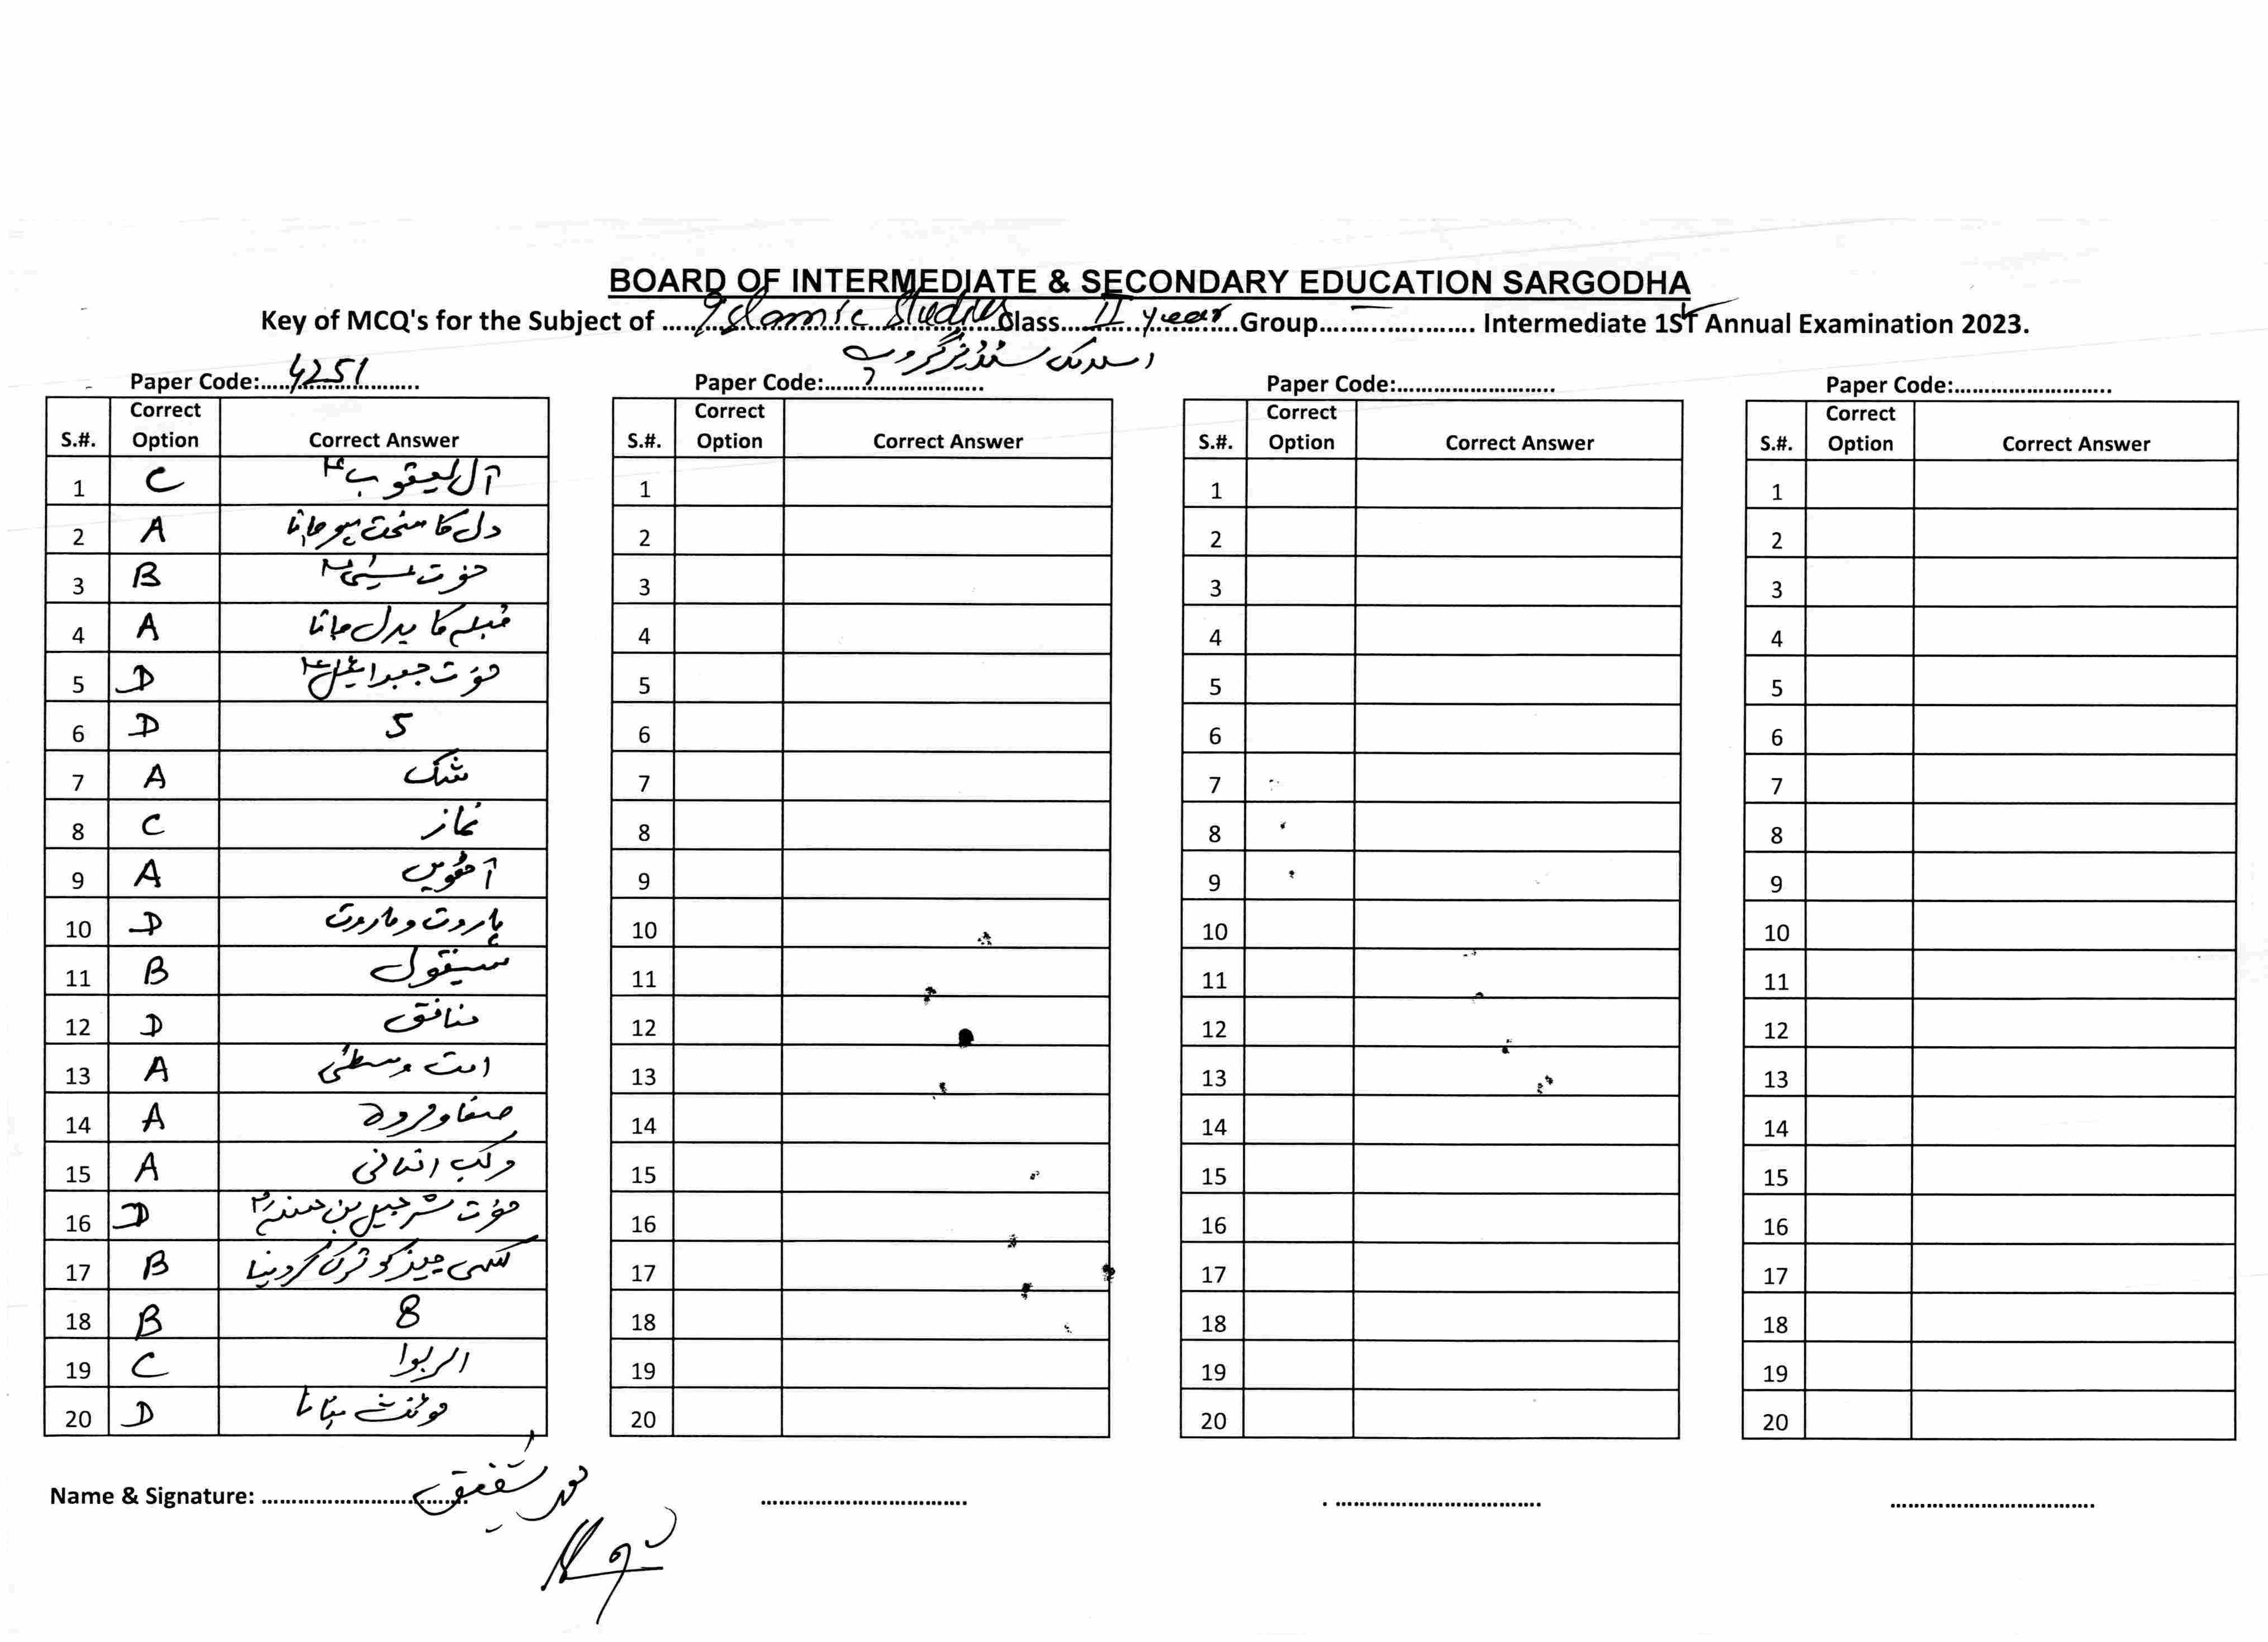 BOARD OF INTERMEDIATE & SECONDARY EDUCATION SARGODHA
Key of MCQ's for the Subject of Islamic Studies Class II year Group – Intermediate 1ST Annual Examination 2023.
اسلامک سٹڈیز گروپ
Paper Code: 4251
S.#. Correct Option Correct Answer
1 C آل یعقوبؑ
2 A دل کا سخت ہو جانا
3 B حضرت عیسیٰؑ
4 A قبلہ کا بدل جانا
5 D حضرت جبرائیلؑ
6 D 5
7 A شک
8 C نماز
9 A آٹھویں
10 D ہاروت و ماروت
11 B سیقول
12 D منافق
13 A امت وسطیٰ
14 A صفا و مروہ
15 A مرکب اضافی
16 D حضرت شرحبیل بن حسنہؓ
17 B کسی چیز کو ترک کر دینا
18 B 8
19 C الربوا
20 D مونث بنانا
Paper Code:
S.#. Correct Option Correct Answer
1
2
3
4
5
6
7
8
9
10
11
12
13
14
15
16
17
18
19
20
Paper Code:
S.#. Correct Option Correct Answer
1
2
3
4
5
6
7
8
9
10
11
12
13
14
15
16
17
18
19
20
Paper Code:
S.#. Correct Option Correct Answer
1
2
3
4
5
6
7
8
9
10
11
12
13
14
15
16
17
18
19
20
Name & Signature: محمد شفیق